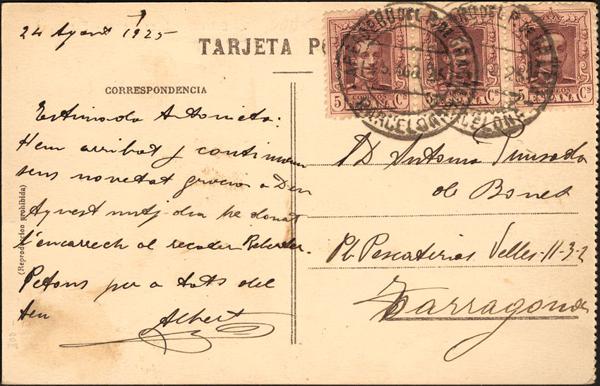 24 Agost 1925
TARJETA PO
CORRESPONDENCIA
Estimada Antonieta:
Hem arribat y continuem
sens novetat gracias a Deu
Aquest mitj dia he donat
l'encarrech al recader
Petons per a tots del
teu Albert
(Reproducción prohibida)
5 Cs ESPAÑA 5 Cs
BARCELONA
D Antonia
de Bonet
Pl. Pescaterias Velles-11-3-2
Tarragona